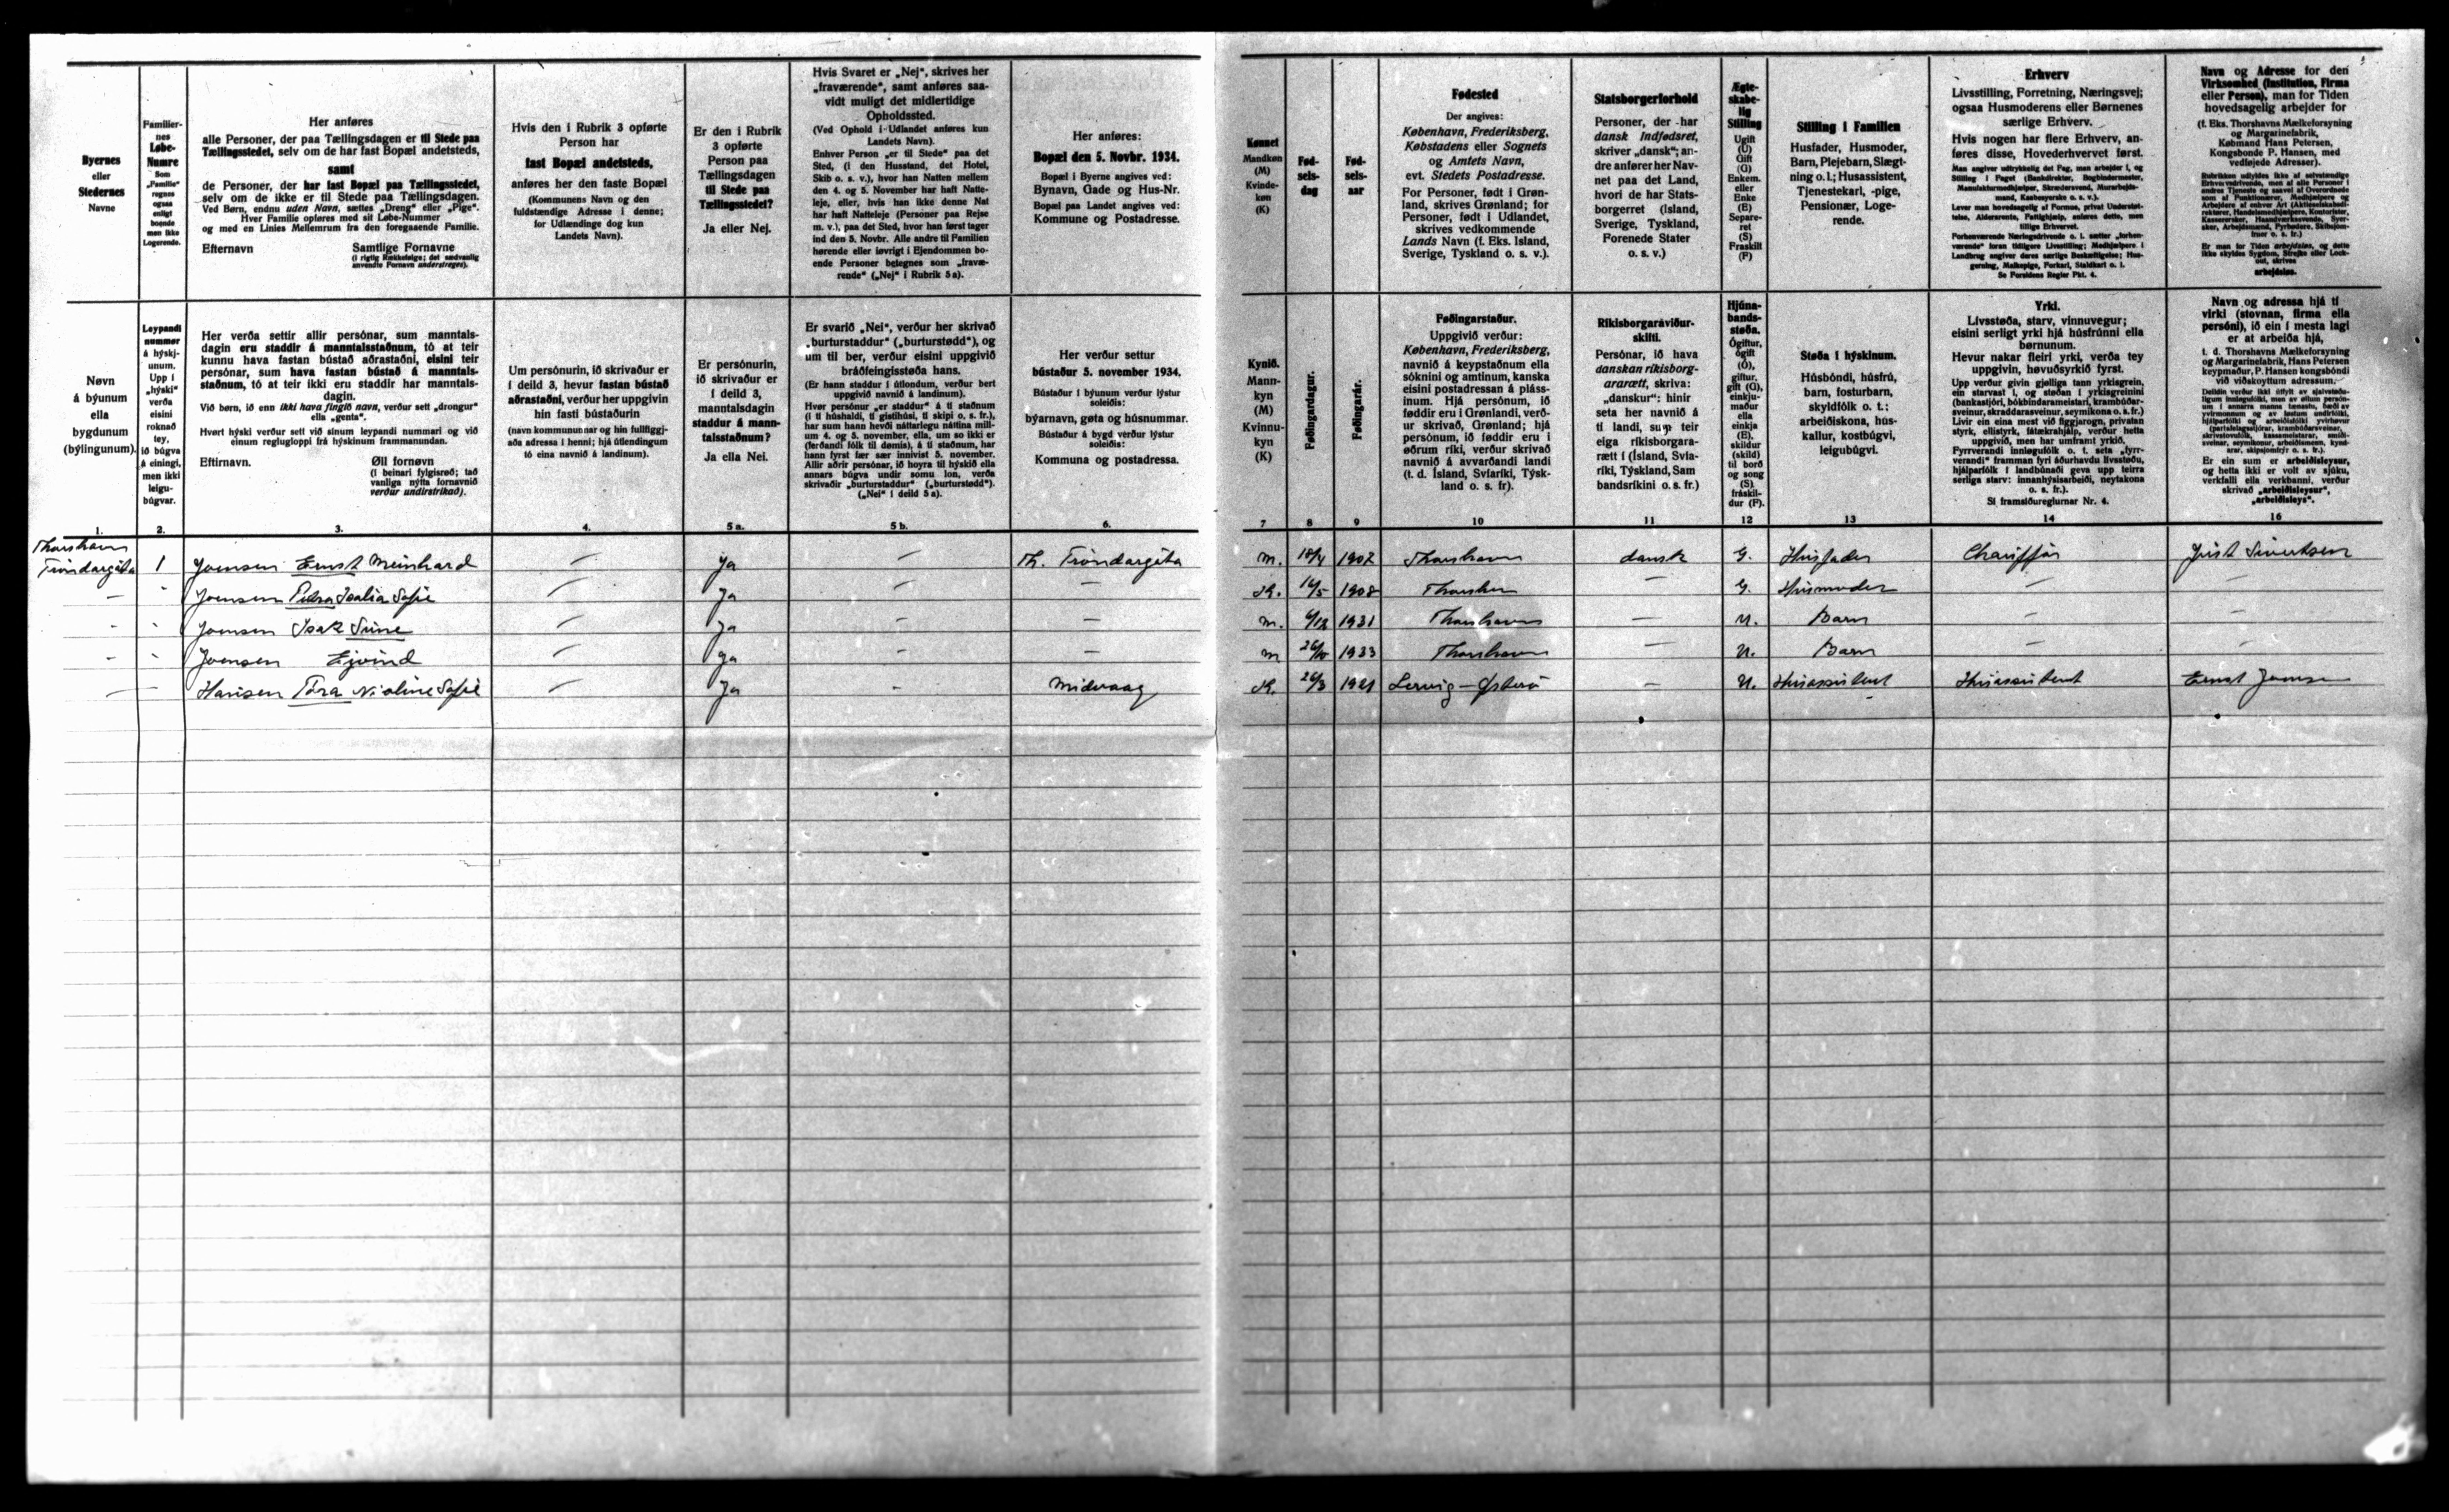 Byernes
eller
Stedernes
Navne
Familier-
nes
Løbe-
Numre
Som
„Familie“
regnes
ogsaa
enligt
boende
men ikke
Logerende.
Her anføres
alle Personer, der paa Tællingsdagen er til Stede paa
Tællingsstedet, selv om de har fast Bopæl andetsteds,
samt
de Personer, der har fast Bopæl paa Tællingsstedet,
selv om de ikke er til Stede paa Tællingsdagen.
Ved Børn, endnu uden Navn, sættes „Dreng“ eller „Pige“.
Hver Familie opføres med sit Løbe-Nummer
og med en Linies Mellemrum fra den foregaaende Familie.
Efternavn Samtlige Fornavne
(i rigtig Rækkefølge; det sædvanlig
anvendte Fornavn understreges).
Hvis den i Rubrik 3 opførte
Person har
fast Bopæl andetsteds,
anføres her den faste Bopæl
(Kommunens Navn og den
fuldstændige Adresse i denne;
for Udlændinge dog kun
Landets Navn).
Er den i Rubrik
3 opførte
Person paa
Tællingsdagen
til Stede paa
Tællingsstedet?
Ja eller Nej.
Hvis Svaret er „Nej“, skrives her
„fraværende“, samt anføres saa-
vidt muligt det midlertidige
Opholdssted.
(Ved Ophold i Udlandet anføres kun
Landets Navn).
Enhver Person „er til Stede“ paa det
Sted, (i den Husstand, det Hotel,
Skib o. s. v.), hvor han Natten mellem
den 4. og 5. November har haft Natte-
leje, eller, hvis han ikke denne Nat
har haft Natteleje (Personer paa Rejse
m. v.), paa det Sted, hvor han først tager
ind den 5. Novbr. Alle andre til Familien
hørende eller iøvrigt i Ejendommen bo-
ende Personer betegnes som „fravæ-
rende“ („Nej“ i Rubrik 5 a).
Her anføres:
Bopæl den 5. Novbr. 1934.
Bopæl i Byerne angives ved:
Bynavn, Gade og Hus-Nr.
Bopæl paa Landet angives ved:
Kommune og Postadresse.
Kønnet
Mandkøn
(M)
Kvinde-
køn
(K)
Fød-
sels-
dag
Fød-
sels-
aar
Fødested
Der angives:
København, Frederiksberg,
Købstadens eller Sognets
og Amtets Navn,
evt. Stedets Postadresse.
For Personer, født i Grøn-
land, skrives Grønland; for
Personer, født i Udlandet,
skrives vedkommende
Lands Navn (f. Eks. Island,
Sverige, Tyskland o. s. v.).
Statsborgerforhold
Personer, der har
dansk Indfødsret,
skriver „dansk“; an-
dre anfører her Nav-
net paa det Land,
hvori de har Stats-
borgerret (Island,
Sverige, Tyskland,
Forenede Stater
o. s. v.)
Ægte-
skabe-
lig
Stilling
Ugift
(U)
Gift
(G)
Enkem.
eller
Enke
(E)
Separe-
ret
(S)
Fraskilt
(F)
Stilling i Familien
Husfader, Husmoder,
Barn, Plejebarn, Slægt-
ning o. l.; Husassistent,
Tjenestekarl, -pige,
Pensionær, Loge-
rende.
Erhverv
Livsstilling, Forretning, Næringsvej;
ogsaa Husmoderens eller Børnenes
særlige Erhverv.
Hvis nogen har flere Erhverv, an-
føres disse, Hovederhvervet først.
Se Forsidens Regler Pkt. 4.
Navn og Adresse for den
Virksomhed (Institution, Firma
eller Person), man for Tiden
hovedsagelig arbejder for
(f. Eks. Thorshavns Mælkeforsyning
og Margarinefabrik,
Købmand Hans Petersen,
Kongsbonde P. Hansen, med
vedføjede Adresser).
arbejdsløs.
Nøvn
á býunum
ella
bygdunum
(býlingunum).
Leypandi
nummar
á hýskj-
unum.
Upp í
„hýski“
verða
eisini
roknað
tey,
ið búgva
á einingi,
men ikki
leigu-
búgvar.
Her verða settir allir persónar, sum manntals-
dagin eru staddir á manntalsstaðnum, tó at teir
kunnu hava fastan bústað aðrastaðni, eisini teir
persónar, sum hava fastan bústað á manntals-
staðnum, tó at teir ikki eru staddir har manntals-
dagin.
Við børn, ið enn ikki hava fingið navn, verður sett „drongur“
ella „genta“.
Hvørt hýski verður sett við sínum leypandi nummari og við
einum reglugloppi frá hýskinum frammanundan.
Eftirnavn. Øll fornøvn
(í beinari fylgisrøð; tað
vanliga nýtta fornavnið
verður undirstrikað).
Um persónurin, ið skrivaður er
í deild 3, hevur fastan bústað
aðrastaðni, verður her uppgivin
hin fasti bústaðurin
(navn kommununar og hin fullfíggj-
aða adressa í henni; hjá útlendingum
tó eina navnið á landinum).
Er persónurin,
ið skrivaður er
í deild 3,
manntalsdagin
staddur á mann-
talsstaðnum?
Ja ella Nei.
Er svarið „Nei“, verður her skrivað
„burturstaddur“ („burturstødd“), og
um til ber, verður eisini uppgivið
bráðfeingisstøða hans.
(Er hann staddur í útlondum, verður bert
uppgivið navnið á landinum).
skrivaðir „burturstaddur“ („burturstødd“).
(„Nei“ í deild 5 a).
Her verður settur
bústaður 5. november 1934.
Bústaður í býunum verður lýstur
soleiðis:
býarnavn, gøta og húsnummar.
Bústaður á bygd verður lýstur
soleiðis:
Kommuna og postadressa.
Kynið.
Mann-
kyn
(M)
Kvinnu-
kyn
(K)
Føðingardagur.
Føðingarár.
Føðingarstaður.
Uppgivið verður:
København, Frederiksberg,
navnið á keypstaðnum ella
sóknini og amtinum, kanska
eisini postadressan á pláss-
inum. Hjá persónum, ið
føddir eru í Grønlandi, verð-
ur skrivað, Grønland; hjá
persónum, ið føddir eru í
øðrum ríki, verður skrivað
navnið á avvarðandi landi
(t. d. Ísland, Svíaríki, Týsk-
land o. s. fr).
Ríkisborgaraviður-
skifti.
Persónar, ið hava
danskan ríkisborg-
ararætt, skriva:
„danskur“: hinir
seta her navnið á
tí landi, sum teir
eiga ríkisborgara-
rætt í (Ísland, Svía-
ríki, Týskland, Sam
bandsríkini o. s. fr.)
Hjúna-
bands-
støða.
Ógiftur,
ógift
(Ó),
giftur,
gift (G),
einkju-
maður
ella
einkja
(E),
skildur
(skild)
til borð
og song
(S),
fráskil-
dur (F).
Støða í hýskinum.
Húsbóndi, húsfrú,
barn, fosturbarn,
skyldfólk o. t.;
arbeiðiskona, hús-
kallur, kostbúgvi,
leigubúgvi.
Yrki.
Livsstøða, starv, vinnuvegur;
eisini serligt yrki hjá húsfrúnni ella
børnunum.
Hevur nakar fleiri yrki, verða tey
uppgivin, høvuðsyrkið fyrst.
Sí framsiðureglurnar Nr. 4.
Navn og adressa hjá tí
virki (stovnan, firma ella
persóni), ið ein í mesta lagi
er at arbeiða hjá,
t. d. Thorshavns Mælkeforsyning
og Margarinefabrik, Hans Petersen
keypmaður, P. Hansen kongsbóndi
við viðskoyttum adressum.
Er ein sum er arbeiðisleysur,
og hetta ikki er volt av sjúku,
verkfalli ella verkbanni, verður
skrivað „arbeiðisleysur“,
„arbeiðisleys“.
1. 2. 3. 4. 5 a. 5 b. 6. 7 8 9 10 11 12 13 14 15 16
Thorshavn
Tróndargöta 1 Joensen Ernst Meinhard — Ja — Th. Tróndargöta M. 18/4 1907 Thorshavn dansk G. Husfader Chauffør Just Sivertsen
— " Joensen Petra Isalia Sofie — Ja — — K. 5 1908 Thorshavn — G. Husmoder — —
— " Joensen Isak Sune — Ja — — M. 6/12 1931 Thorshavn — U. Barn — —
— " Joensen Ejvind — Ja — — M 26/10 1933 Thorshavn — U. Barn — —
— — Hansen Tóra Nicoline Sofie — Ja — Midvaag K. 26/3 1921 Lervig — Østerö — U. Husassistent Husassistent Ernst Joensen